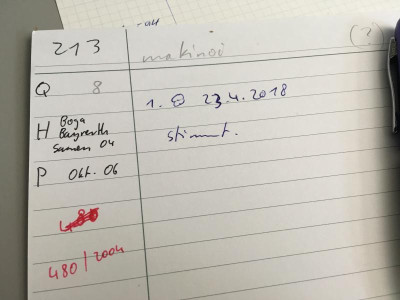 213
makinoi (?)
Q 8
1. 23.4.2018
H Boga
Bayreuth
Samen 04
stimmt.
P Okt. 06
480/2004